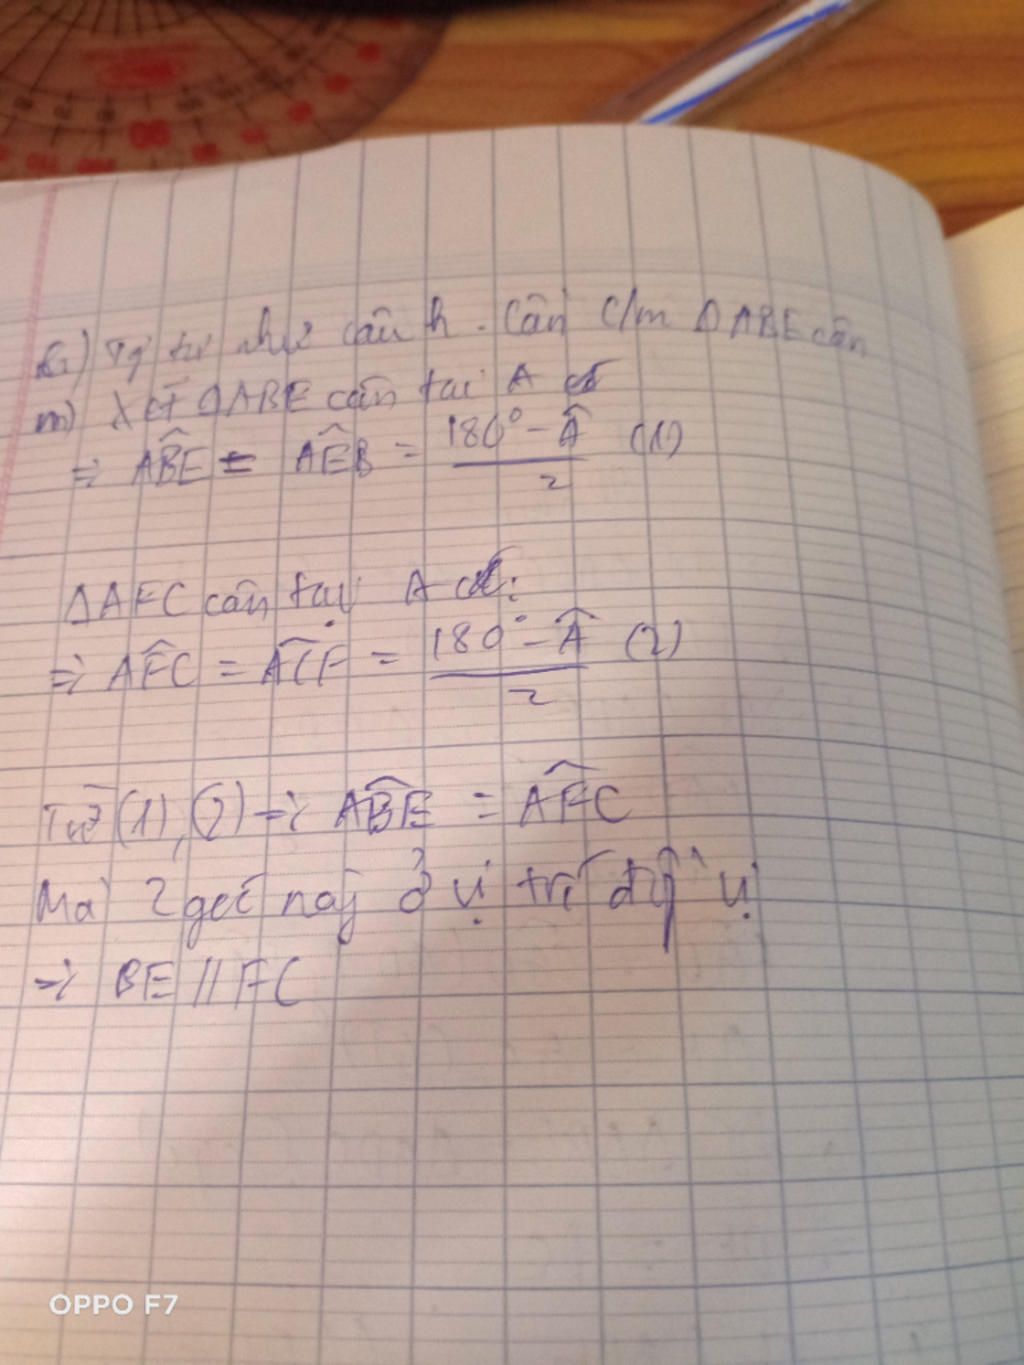 Tg tự như câu h. Cần c/m ΔABE cân
m) Xét ΔABE cân tại A có
=> ABÊ = AÊB = (180° - Â)/2 (1)
ΔAFC cân tại A có:
=> AF̂C = AĈF = (180° - Â)/2 (2)
Từ (1), (2) => AB̂E = AF̂C
Mà 2 góc này ở vị trí đồg vị
=> BE // FC
OPPO F7